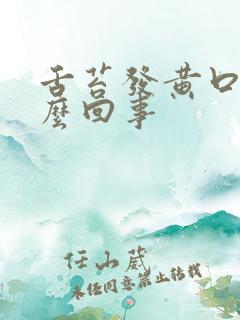 舌苔發黃口
麼回事
任小葳
未经同意禁止转载